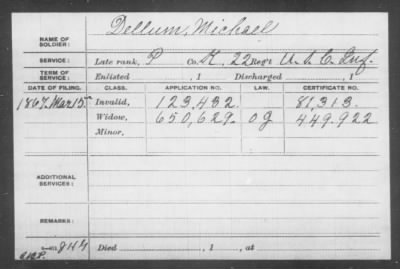 NAME OF SOLDIER: Dellum, Michael
SERVICE: Late rank, P Co. K, 22 Reg't U.S.C. Inf.
TERM OF SERVICE: Enlisted , 1 Discharged , 1
DATE OF FILING. CLASS. APPLICATION NO. LAW. CERTIFICATE NO.
1867. Mar 15. Invalid, 123,432. 81,313.
Widow, 650,629. O G 449.922
Minor,
ADDITIONAL SERVICES:
REMARKS:
Died , 1 , at